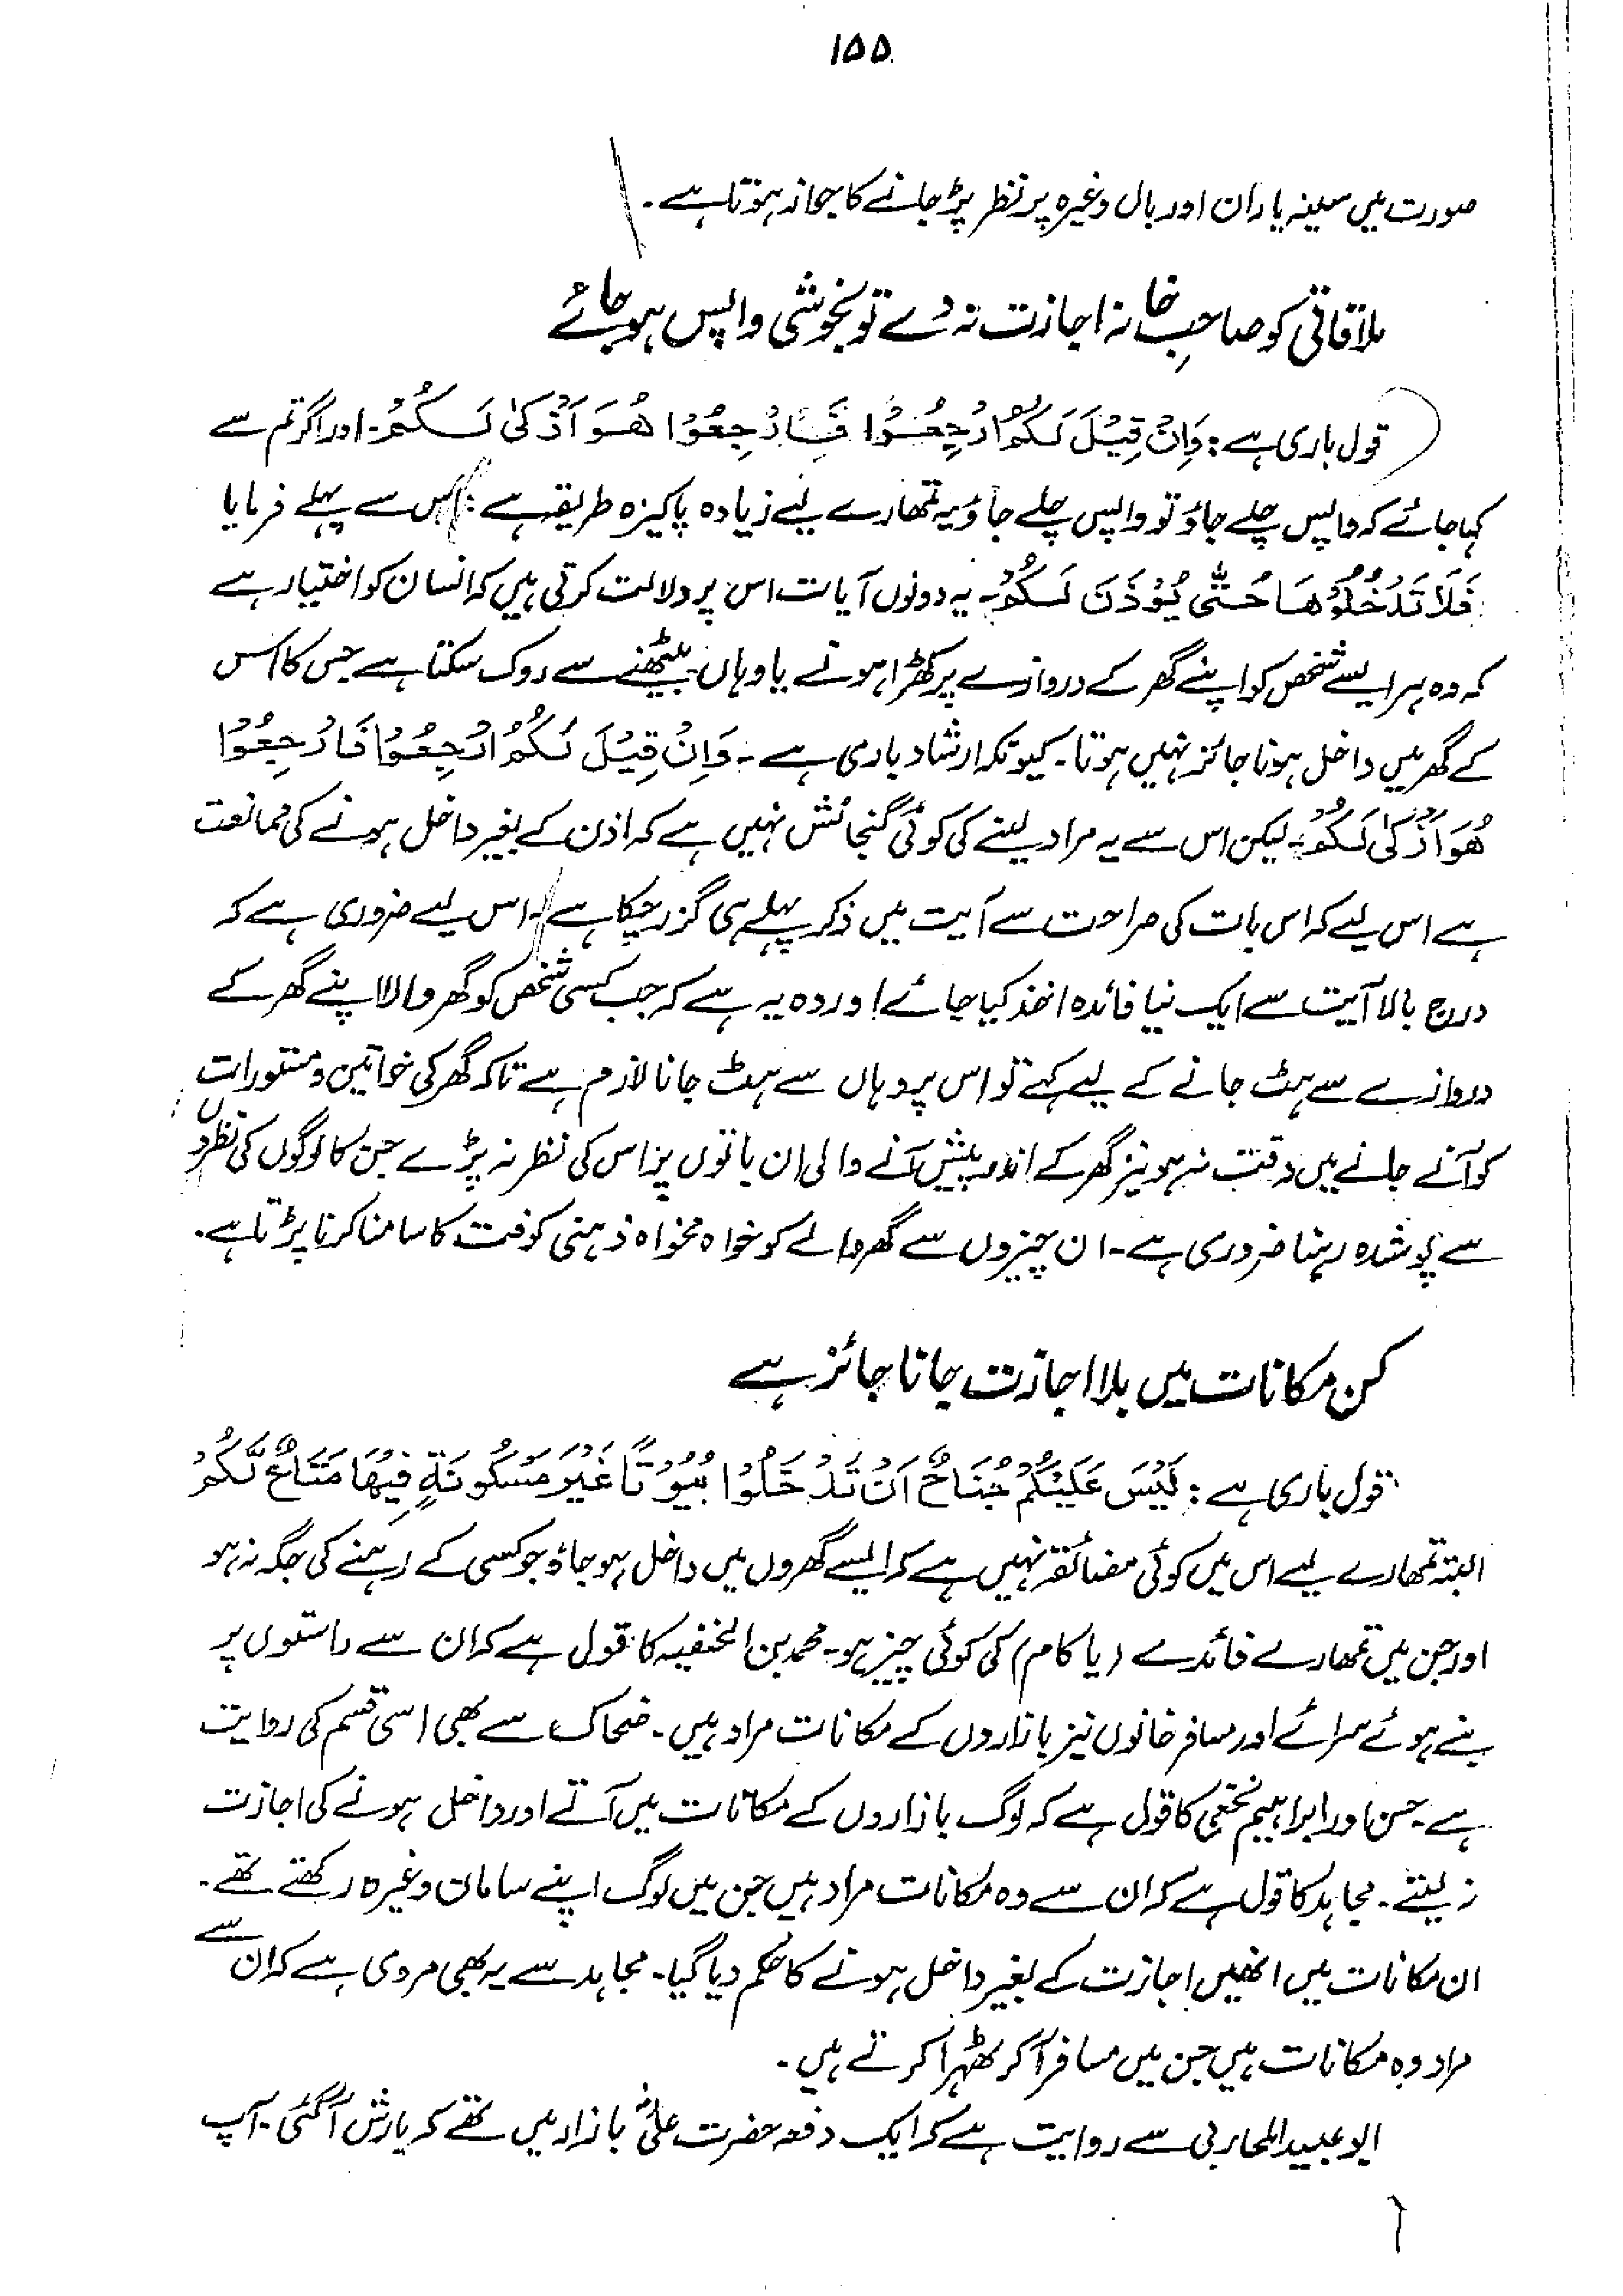 ۱۵۵
صورت میں سینہ یا ران اور بال وغیرہ پر نظر پڑ جانے کا جواز ہوتا ہے۔
ملاقاتی کو صاحبِ خانہ اجازت نہ دے تو بخوشی واپس ہو جائے
قول باری ہے: وَاِنْ قِیْلَ لَکُمُ ارْجِعُوْا فَارْجِعُوْا ھُوَ اَزْکٰی لَکُمْ۔ اور اگر تم سے
کہا جائے کہ واپس چلے جاؤ تو واپس چلے جاؤ یہ تمھارے لیے زیادہ پاکیزہ طریقہ ہے: اس سے پہلے فرمایا
فَلَا تَدْخُلُوْھَا حَتّٰی یُؤْذَنَ لَکُمْ۔ یہ دونوں آیات اس پر دلالت کرتی ہیں کہ انسان کو اختیار ہے
کہ وہ ہر ایسے شخص کو اپنے گھر کے دروازے پر کھڑا ہونے یا وہاں بیٹھنے سے روک سکتا ہے جس کا اس
کے گھر میں داخل ہونا جائز نہیں ہوتا۔ کیونکہ ارشاد باری ہے۔ وَاِنْ قِیْلَ لَکُمُ ارْجِعُوْا فَارْجِعُوْا
ھُوَ اَزْکٰی لَکُمْ۔ لیکن اس سے یہ مراد لینے کی کوئی گنجائش نہیں ہے کہ اذن کے بغیر داخل ہونے کی ممانعت
ہے اس لیے کہ اس بات کی صراحت سے آیت میں ذکر پہلے ہی گزر چکا ہے۔ اس لیے ضروری ہے کہ
درج بالا آیت سے ایک نیا فائدہ اخذ کیا جائے اور وہ یہ ہے کہ جب کسی شخص کو گھر والا اپنے گھر کے
دروازے سے ہٹ جانے کے لیے کہے تو اس پر وہاں سے ہٹ جانا لازم ہے تاکہ گھر کی خواتین و مستورات
کو آنے جانے میں دقت نہ ہو نیز گھر کے اندر پیش آنے والی ان باتوں پر اس کی نظر نہ پڑے جن کا لوگوں کی نظروں
سے پوشدہ رہنا ضروری ہے۔ ان چیزوں سے گھر والے کو خواہ مخواہ ذہنی کوفت کا سامنا کرنا پڑتا ہے۔
کن مکانات میں بلا اجازت جانا جائز ہے
قول باری ہے: لَیْسَ عَلَیْکُمْ جُنَاحٌ اَنْ تَدْخُلُوْا بُیُوْتًا غَیْرَ مَسْکُوْنَۃٍ فِیْھَا مَتَاعٌ لَّکُمْ
البتہ تمھارے لیے اس میں کوئی مضائقہ نہیں ہے کہ ایسے گھروں میں داخل ہو جاؤ جو کسی کے رہنے کی جگہ نہ ہو
اور جن میں تمھارے فائدے (یا کام) کی کوئی چیز ہو۔ محمد بن الحنفیہ کا قول ہے کہ ان سے راستوں پر
بنے ہوئے سرائے اور مسافر خانوں نیز بازاروں کے مکانات مراد ہیں۔ ضحاک سے بھی اسی قسم کی روایت
ہے۔ حسن اور ابراہیم نخعی کا قول ہے کہ لوگ بازاروں کے مکانات میں آتے اور داخل ہونے کی اجازت
نہ لیتے۔ مجاہد کا قول ہے کہ ان سے وہ مکانات مراد ہیں جن میں لوگ اپنے سامان وغیرہ رکھتے تھے۔
ان مکانات میں انھیں اجازت کے بغیر داخل ہونے کا حکم دیا گیا۔ مجاہد سے یہ بھی مروی ہے کہ ان سے
مراد وہ مکانات ہیں جن میں مسافر آ کر ٹھہرا کرتے ہیں۔
ابو عبید المحاربی سے روایت ہے کہ ایک دفعہ حضرت علیؓ بازار میں تھے کہ بارش آگئی۔ آپ